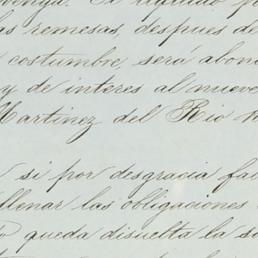 venga. El líquido p
as remesas, despues de
costumbre, será abon
y de interes al nueve
Martinez del Rio H
si por desgracia fal
llenar las obligaciones
queda disuelta la so